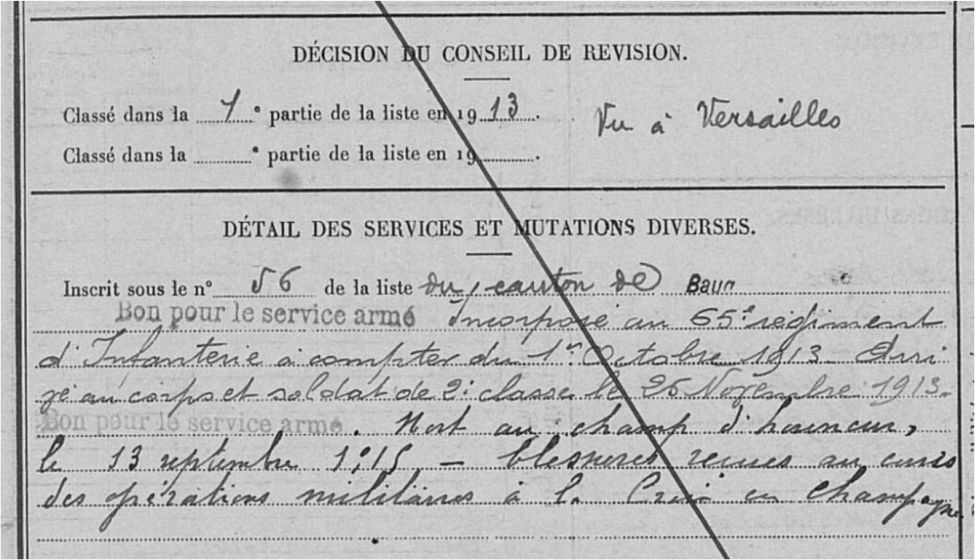 DÉCISION DU CONSEIL DE REVISION.
Classé dans la 1e partie de la liste en 1913.
Vu à Versailles
Classé dans la e partie de la liste en 19 .
DÉTAIL DES SERVICES ET MUTATIONS DIVERSES.
Inscrit sous le n° 56 de la liste du canton de Baud
Bon pour le service armé Incorporé au 65e régiment
d'Infanterie à compter du 1er Octobre 1913. Arri
vé au corps et soldat de 2e classe le 26 Novembre 1913.
Bon pour le service armé. Mort au champ d'honneur,
le 13 septembre 1915 – blessures reçues au cours
des opérations militaires à la en Champagne